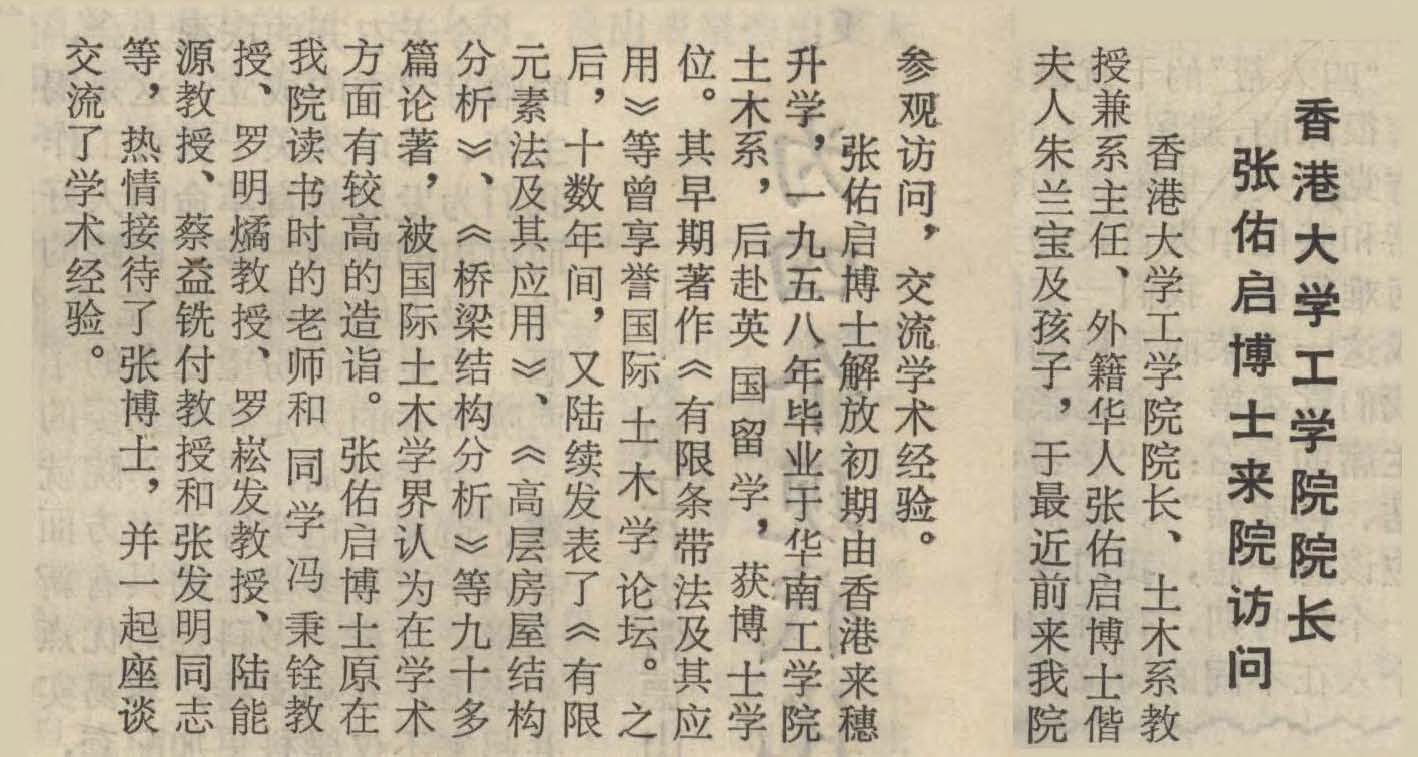 香港大学工学院院长
张佑启博士来院访问
香港大学工学院院长、土木系教
授兼系主任、外籍华人张佑启博士偕
夫人朱兰宝及孩子，于最近前来我院
参观访问，交流学术经验。
张佑启博士解放初期由香港来穗
升学，一九五八年毕业于华南工学院
土木系，后赴英国留学，获博士学
位。其早期著作《有限条带法及其应
用》等曾享誉国际土木学论坛。之
后，十数年间，又陆续发表了《有限
元素法及其应用》、《高层房屋结构
分析》、《桥梁结构分析》等九十多
篇论著，被国际土木学界认为在学术
方面有较高的造诣。张佑启博士原在
我院读书时的老师和同学冯秉铨教
授、罗明燏教授、罗崧发教授、陆能
源教授、蔡益铣付教授和张发明同志
等，热情接待了张博士，并一起座谈
交流了学术经验。